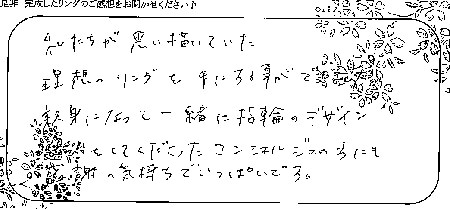 是非 完成したリングのご感想をお聞かせください♪
私たちが思い描いていた
理想のリングを手にする事ができ
親身になって一緒に指輪のデザイン
をしてくださったコンシェルジュの方にも
感謝の気持ちでいっぱいです。